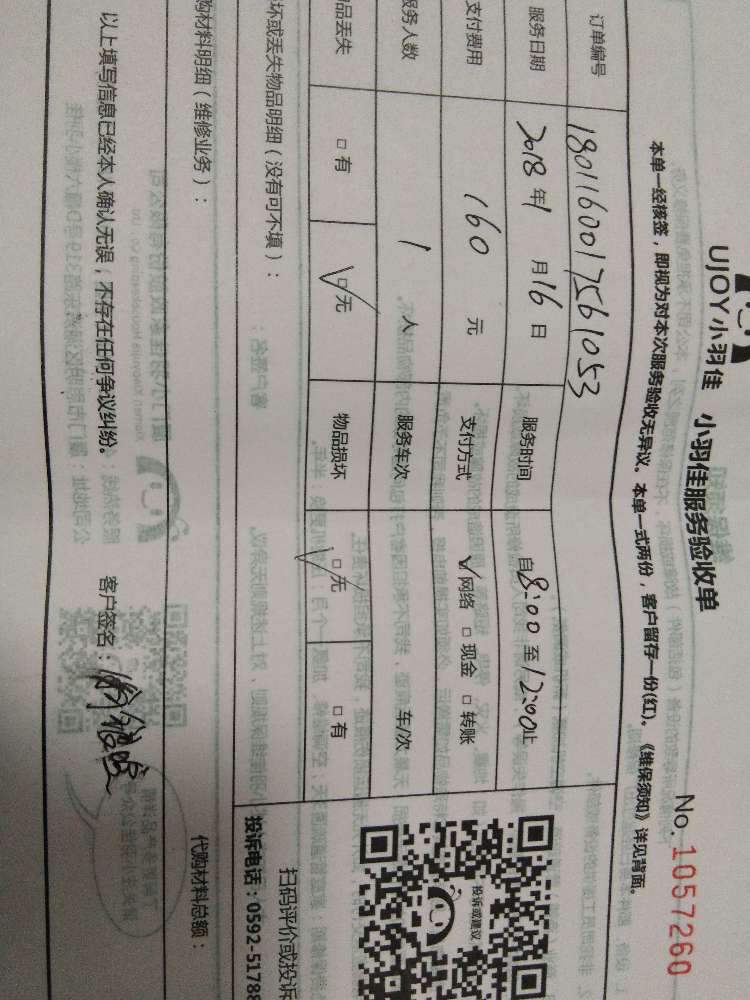 UJOY小羽佳 小羽佳服务验收单 No. 1057260
本单一经核签，即视为对本次服务验收无异议。本单一式两份，客户留存一份(红)。《维保须知》详见背面。
订单编号 1801160017561053
服务日期 2018年1月16日 服务时间 自8:00至12:00止
支付费用 160元 支付方式 √网络 □现金 □转账
服务人数 1人 服务车次 车/次
品丢失 □有 √□无 物品损坏 √□无 □有
坏或丢失物品明细（没有可不填）：
购材料明细（维修业务）：
代购材料总额：
投诉或建议
扫码评价或投诉
投诉电话：0592-51788
以上填写信息已经本人确认无误，不存在任何争议纠纷。 客户签名：